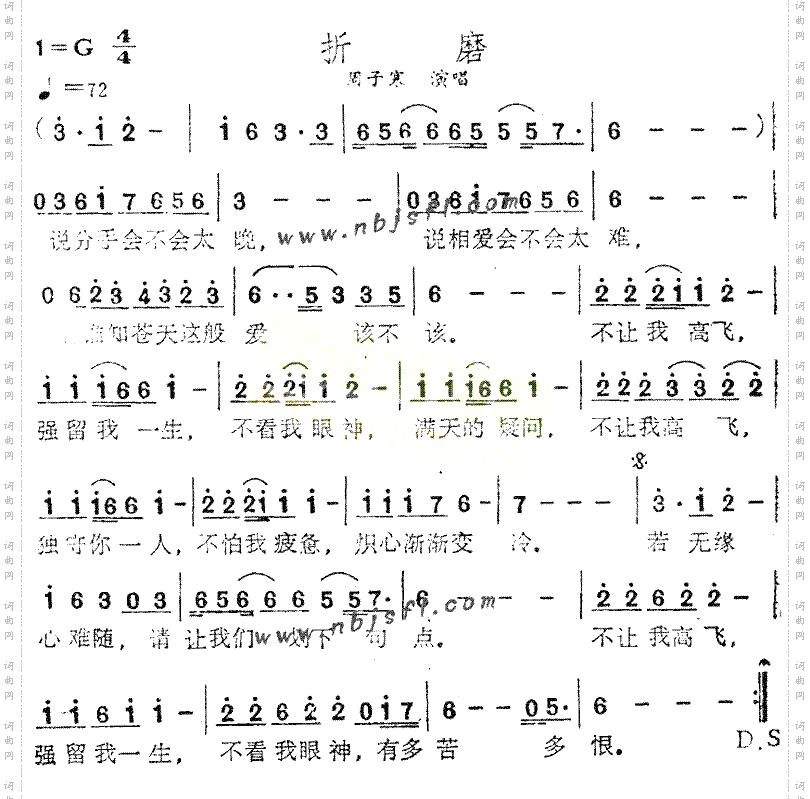 1=G 4/4
折 磨
周子寒 演唱
♩=72
(3̇·1̇ 2̇ − | 1̇ 6 3·3 | 6 5 6 6 6 5 5 5 7· | 6 − − −)
0 3 6 1̇ 7 6 5 6 | 3 − − − | 0 3 6 1̇ 7 6 5 6 | 6 − − − |
说分手会不会太 晚, www.nbjsfl.com 说相爱会不会太 难,
0 6 2̇ 3̇ 4̇ 3̇ 2̇ 3̇ | 6··5 3 3 3 5 | 6 − − − | 2̇ 2̇ 2̇ 1̇ 1̇ 2̇ − |
知苍天这般 爱 该不 该。 不让我 高飞,
1̇ 1̇ 1̇ 6 6 1̇ − | 2̇ 2̇ 2̇ 1̇ 1̇ 2̇ − | 1̇ 1̇ 1̇ 6 6 1̇ − | 2̇ 2̇ 2̇ 3̇ 3̇ 2̇ 2̇ |
强留我 一生, 不看我眼神, 满天的 疑问, 不让我高 飞,
1̇ 1̇ 1̇ 6 6 1̇ − | 2̇ 2̇ 2̇ 1̇ 1̇ 1̇ − | 1̇ 1̇ 1̇ 7 6 6 − | 7 − − − | 3̇·1̇ 2̇ − |
独守你一人, 不怕我疲惫, 炽心渐渐变 冷。 若 无缘
1̇ 6 3 0 3 | 6 5 6 6 6 5 5 7· | 6 − − − | 2̇ 2̇ 6 2̇ 2̇ − |
心难随, 请 让我们 划下 句 点。 不让我高飞,
www.nbjsfl.com
1̇ 1̇ 6 1̇ 1̇ − | 2̇ 2̇ 6 2̇ 2̇ 0 1̇ 7 | 6 − − 0 5· | 6 − − − :‖
强留我一生, 不看我眼神, 有多苦 多 恨。 D.S
词曲网